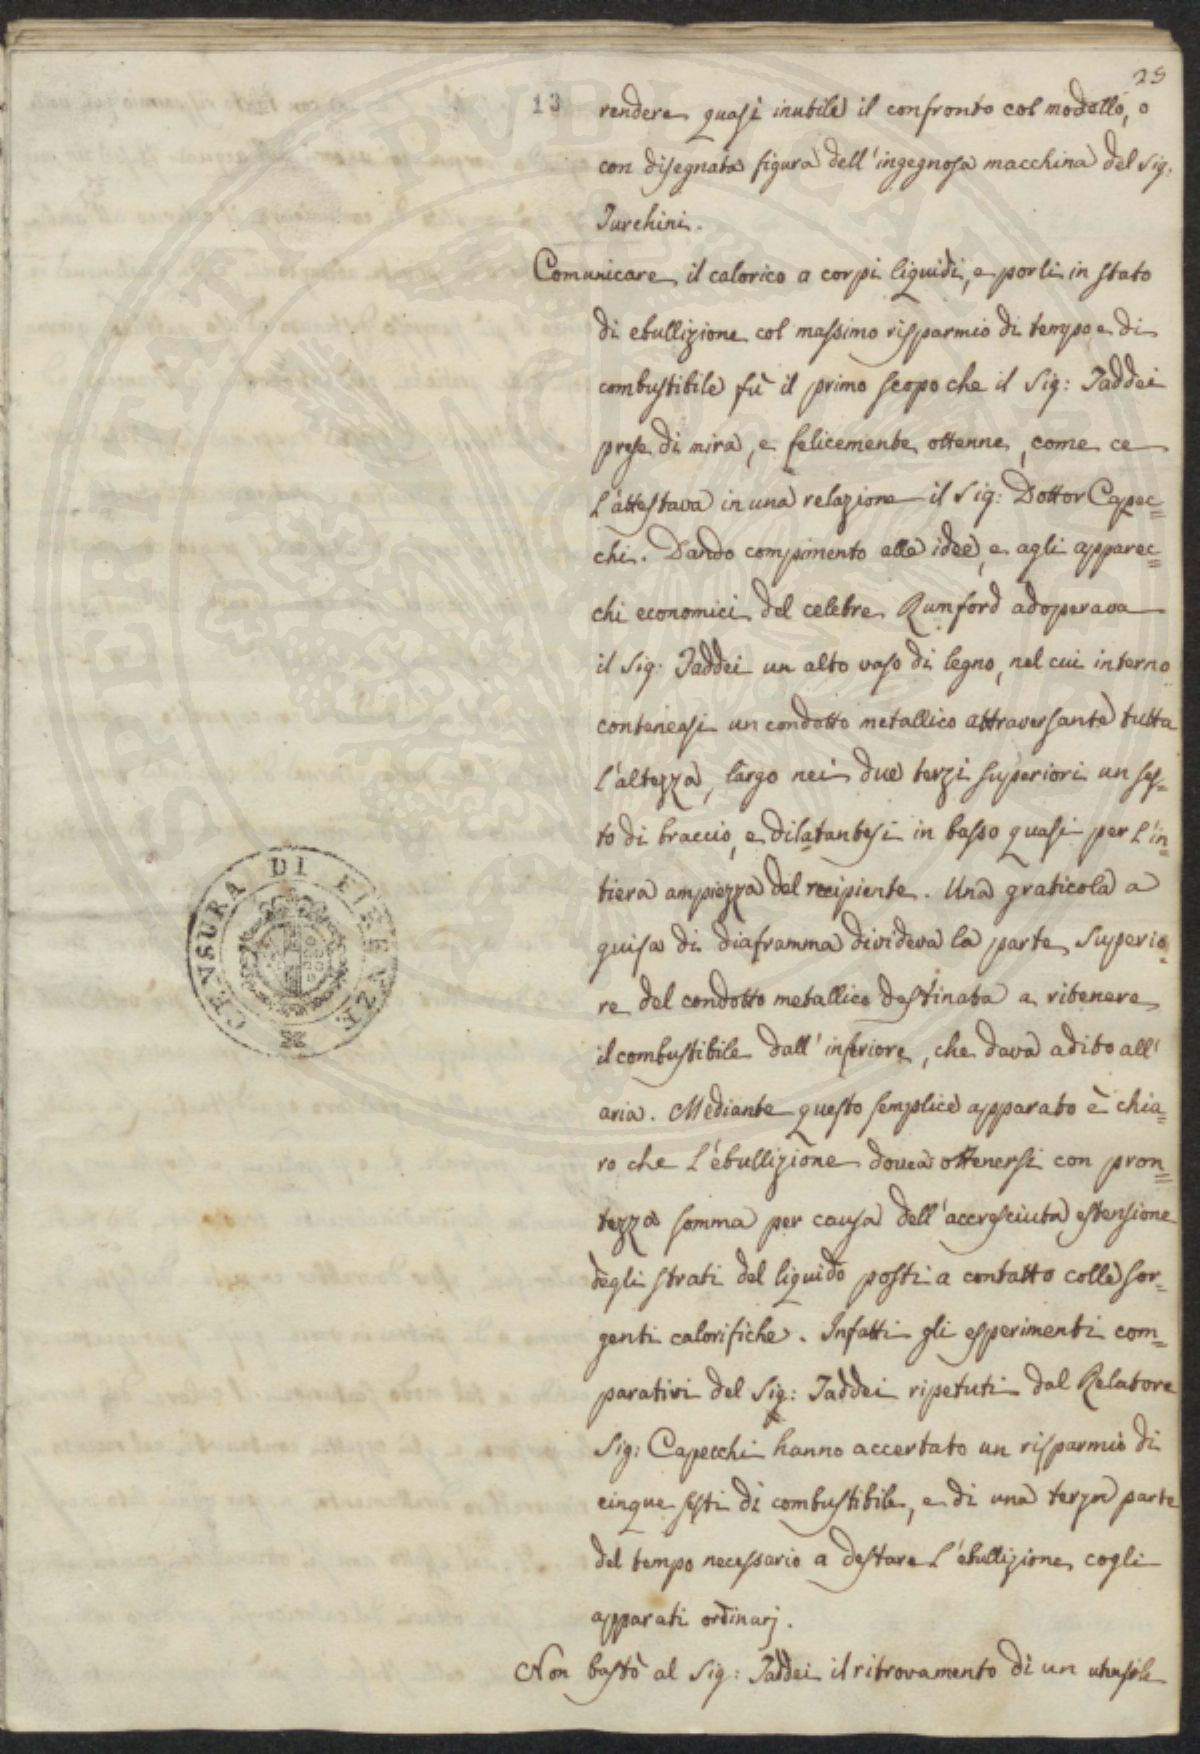 25
13
rendere quasi inutile il confronto col modello, o
con disegnata figura dell'ingegnosa macchina del Sig:
Turchini.
Comunicare il calorico a corpi liquidi, e porli in stato
di ebullizione col massimo risparmio di tempo e di
combustibile fù il primo scopo che il Sig: Taddei
prese di mira, e felicemente ottenne, come ce
l'attestava in una relazione il Sig: Dottor Capec=
chi. Dando compimento alle idee, e agli apparec=
chi economici del celebre Rumford adoperava
il Sig: Taddei un alto vaso di legno, nel cui interno
conteneasi un condotto metallico attraversante tutta
l'altezza, largo nei due terzi superiori un ses=
to di braccio, e dilatantesi in basso quasi per l'in=
tiera ampiezza del recipiente. Una graticola a
guisa di diaframma divideva la parte superio=
re del condotto metallico destinata a ritenere
il combustibile dall'inferiore, che dava adito all'
aria. Mediante questo semplice apparato è chia=
ro che l'ebullizione dovea ottenersi con pron=
tezza somma per causa dell'accresciuta estensione
degli strati del liquido posti a contatto colle sor=
genti calorifiche. Infatti gli esperimenti com=
parativi del Sig: Taddei ripetuti dal Relatore
Sig: Capecchi hanno accertato un risparmio di
cinque sesti di combustibile, e di una terza parte
del tempo necessario a destare l'ebullizione cogli
apparati ordinarj.
Non bastò al Sig: Taddei il ritrovamento di un utensile
CENSURA DI FIRENZE